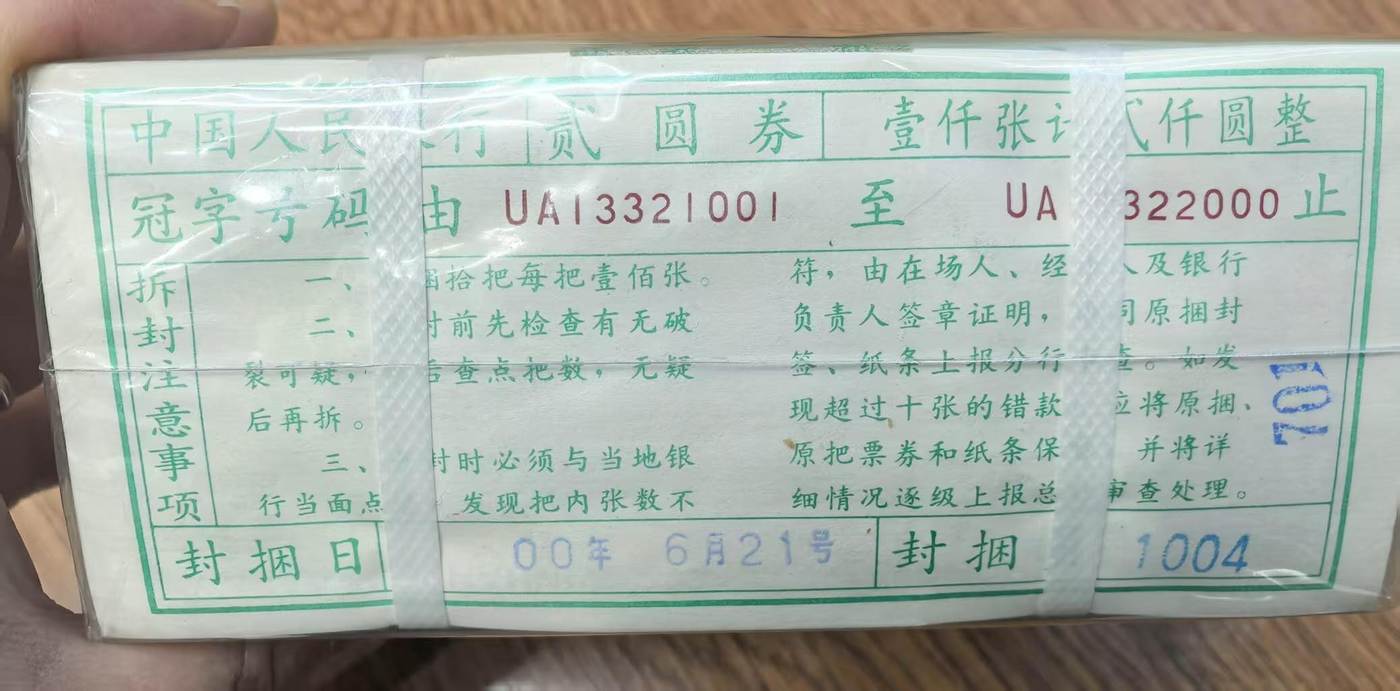 中国人民 行 贰圆券 壹仟张计 贰仟圆整
冠字号码 由 UA13321001 至 UA 322000 止
拆封注意事项
一、 捆拾把每把壹佰张。
二、 封前先检查有无破
裂可疑, 后查点把数，无疑
后再拆。
三、 封时必须与当地银
行当面点 发现把内张数不
符，由在场人、经 人及银行
负责人签章证明， 同原捆封
签、纸条上报分行 查。如发
现超过十张的错款 应将原捆、
原把票券和纸条保 并将详
细情况逐级上报总 审查处理。
701
封捆日 00年 6月21号 封捆 1004